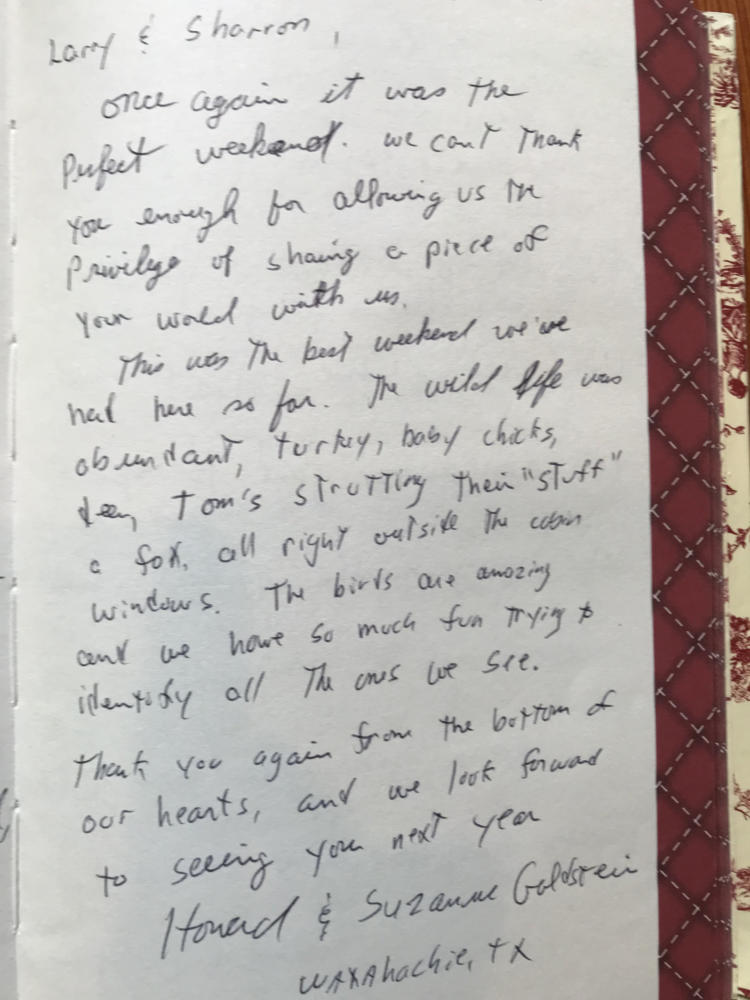 Larry & Sharron,
once again it was the
Perfect weekend. we can't Thank
you enough for allowing us the
Privilege of sharing a piece of
your world with us.
This was The best weekend we've
had here so far. The wild life was
abundant, turkey, baby chicks,
deer, Tom's strutting their "stuff"
a fox, all right outside The cabin
windows. The birds are amazing
and we have so much fun trying to
identify all The ones we see.
Thank you again from the bottom of
our hearts, and we look forward
to seeing you next year
Howard & Suzanne Goldstein
WAXAhachie, TX